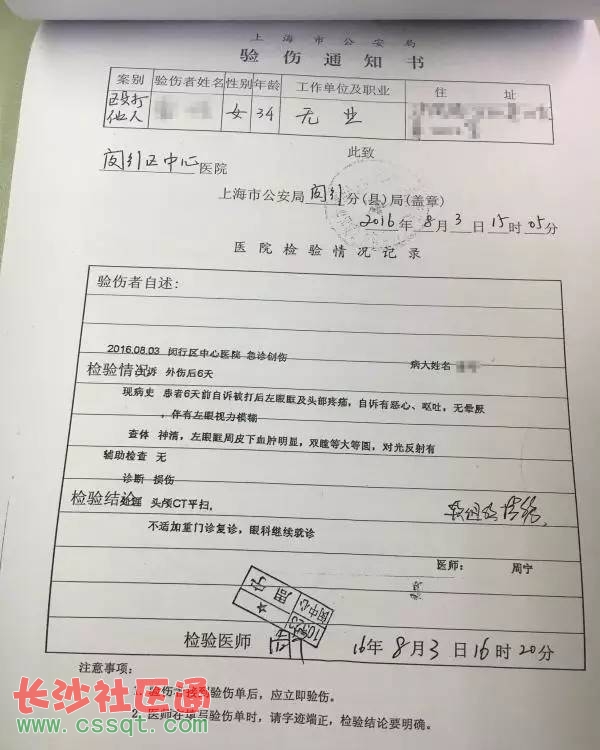 上海市公安局
验伤通知书
案别 验伤者姓名 性别 年龄 工作单位及职业 住 址
殴打他人 女 34 无业
此致
闵行区中心医院
上海市公安局闵行分(县)局(盖章)
2016年8月3日15时05分
医院检验情况记录
验伤者自述:
2016.08.03 闵行区中心医院 急诊创伤 病人姓名
检验情况:
主诉 外伤后6天
现病史 患者6天前自诉被打后左眼眶及头部疼痛,自诉有恶心、呕吐,无晕厥
,伴有左眼视力模糊
查体 神清,左眼眶周皮下血肿明显,双瞳等大等圆,对光反射有
辅助检查 无
诊断 损伤
检验结论:
处理 头颅CT平扫,
软组织挫伤.
不适加重门诊复诊,眼科继续就诊
医师: 周宁
周宁
闵中心
检验医师 16年8月3日16时20分
注意事项:
1、验伤者接到验伤单后,应立即验伤。
2、医师在填写验伤单时,请字迹端正,检验结论要明确。
长沙社区通
www.cssqt.com